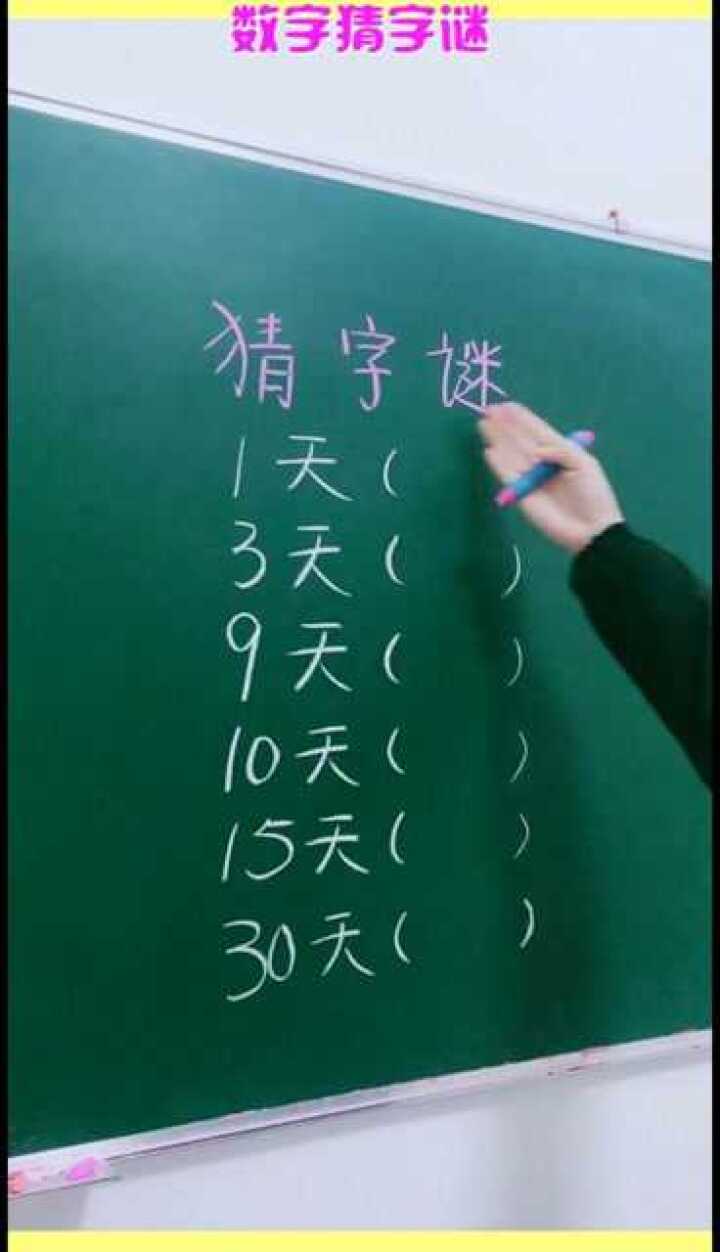 数字猜字谜
猜字谜
1天(
3天( )
9天( )
10天( )
15天( )
30天( )